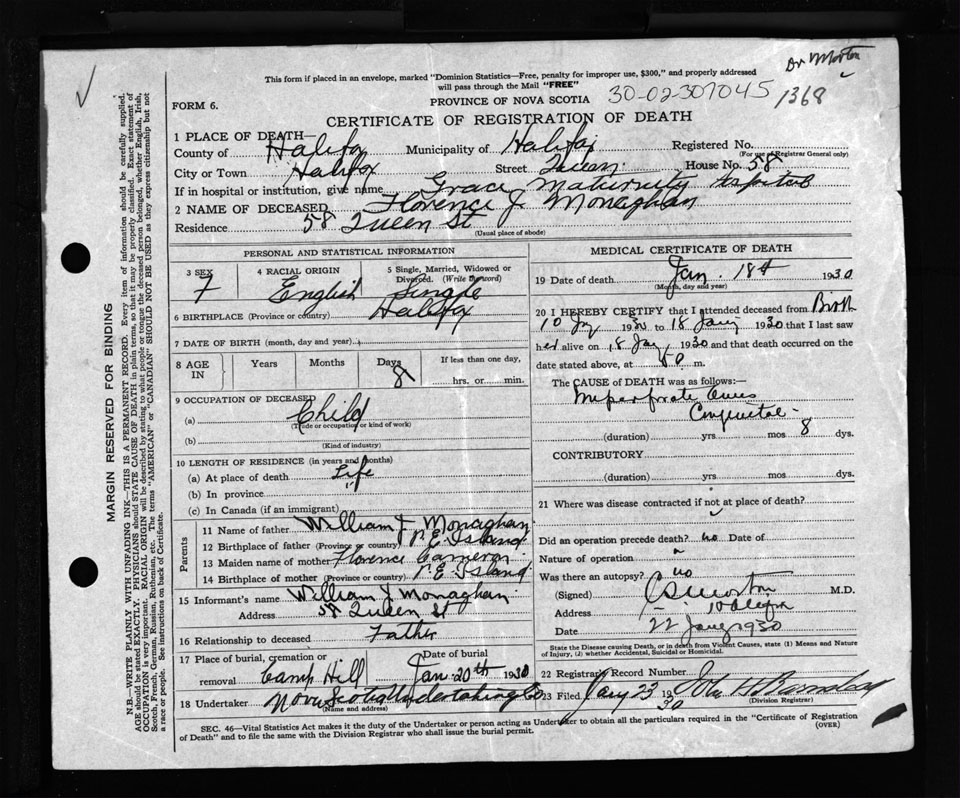 Dr Morton
This form if placed in an envelope, marked "Dominion Statistics—Free, penalty for improper use, $300," and properly addressed
will pass through the Mail "FREE"
30-02-307045
1368
FORM 6.
PROVINCE OF NOVA SCOTIA
CERTIFICATE OF REGISTRATION OF DEATH
1 PLACE OF DEATH—
County of Halifax Municipality of Halifax Registered No.
(For use of Registrar General only)
City or Town Halifax Street Queen House No. 58
If in hospital or institution, give name Grace Maternity Hospital
2 NAME OF DECEASED Florence J Monaghan
Residence 58 Queen St
(Usual place of abode)
PERSONAL AND STATISTICAL INFORMATION
3 SEX F
4 RACIAL ORIGIN English
5 Single, Married, Widowed or Divorced. (Write the word) Single
6 BIRTHPLACE (Province or country) Halifax
7 DATE OF BIRTH (month, day and year)
8 AGE IN Years Months Days 8 If less than one day, hrs. or min.
9 OCCUPATION OF DECEASED
(a) Child
(Trade or occupation or kind of work)
(b)
(Kind of industry)
10 LENGTH OF RESIDENCE (in years and months)
(a) At place of death Life
(b) In province "
(c) In Canada (if an immigrant)
Parents
11 Name of father William J Monaghan
12 Birthplace of father (Province or country) P. E. Island
13 Maiden name of mother Florence Cameron
14 Birthplace of mother (Province or country) P. E. Island
15 Informant's name William J Monaghan
Address 58 Queen St
16 Relationship to deceased Father
17 Place of burial, cremation or removal Camp Hill Date of burial Jan 20th 1930
18 Undertaker Nova Scotia Undertaking Co
(Name and address)
MEDICAL CERTIFICATE OF DEATH
19 Date of death Jan. 18th 1930
(Month, day and year)
20 I HEREBY CERTIFY that I attended deceased from Birth
10 Jan 1930 to 18 Jany 1930 that I last saw
her alive on 18 Jany 1930 and that death occurred on the
date stated above, at m.
The CAUSE OF DEATH was as follows:—
Imperforate Anus
Congenital
(duration) yrs. mos 8 dys.
CONTRIBUTORY
(duration) yrs. mos dys.
21 Where was disease contracted if not at place of death?
Did an operation precede death? no Date of
Nature of operation
Was there an autopsy? no
(Signed) Morton M.D.
Address
Date 22 Jany 1930
State the Disease causing Death, or in death from Violent Causes, state (1) Means and
Nature of Injury, (2) whether Accidental, Suicidal or Homicidal.
22 Registrar's Record Number
23 Filed Jany 23 1930
(Division Registrar)
SEC. 46—Vital Statistics Act makes it the duty of the Undertaker or person acting as Undertaker to obtain all the particulars required in the "Certificate of Registration
of Death" and to file the same with the Division Registrar who shall issue the burial permit.
(OVER)
MARGIN RESERVED FOR BINDING
N.B.—WRITE PLAINLY WITH UNFADING INK—THIS IS A PERMANENT RECORD. Every item of information should be carefully supplied.
AGE should be stated EXACTLY. PHYSICIANS should STATE CAUSE OF DEATH in plain terms, so that it may be properly classified. Exact statement of
OCCUPATION is very important. RACIAL ORIGIN will be described by stating to what people or tongue the deceased person belonged, whether English, Irish,
Scotch, French, German, Russian, Ruthenian, etc. The terms "AMERICAN" or "CANADIAN" SHOULD NOT BE USED as they express citizenship but not
a race or people. See instructions on back of Certificate.